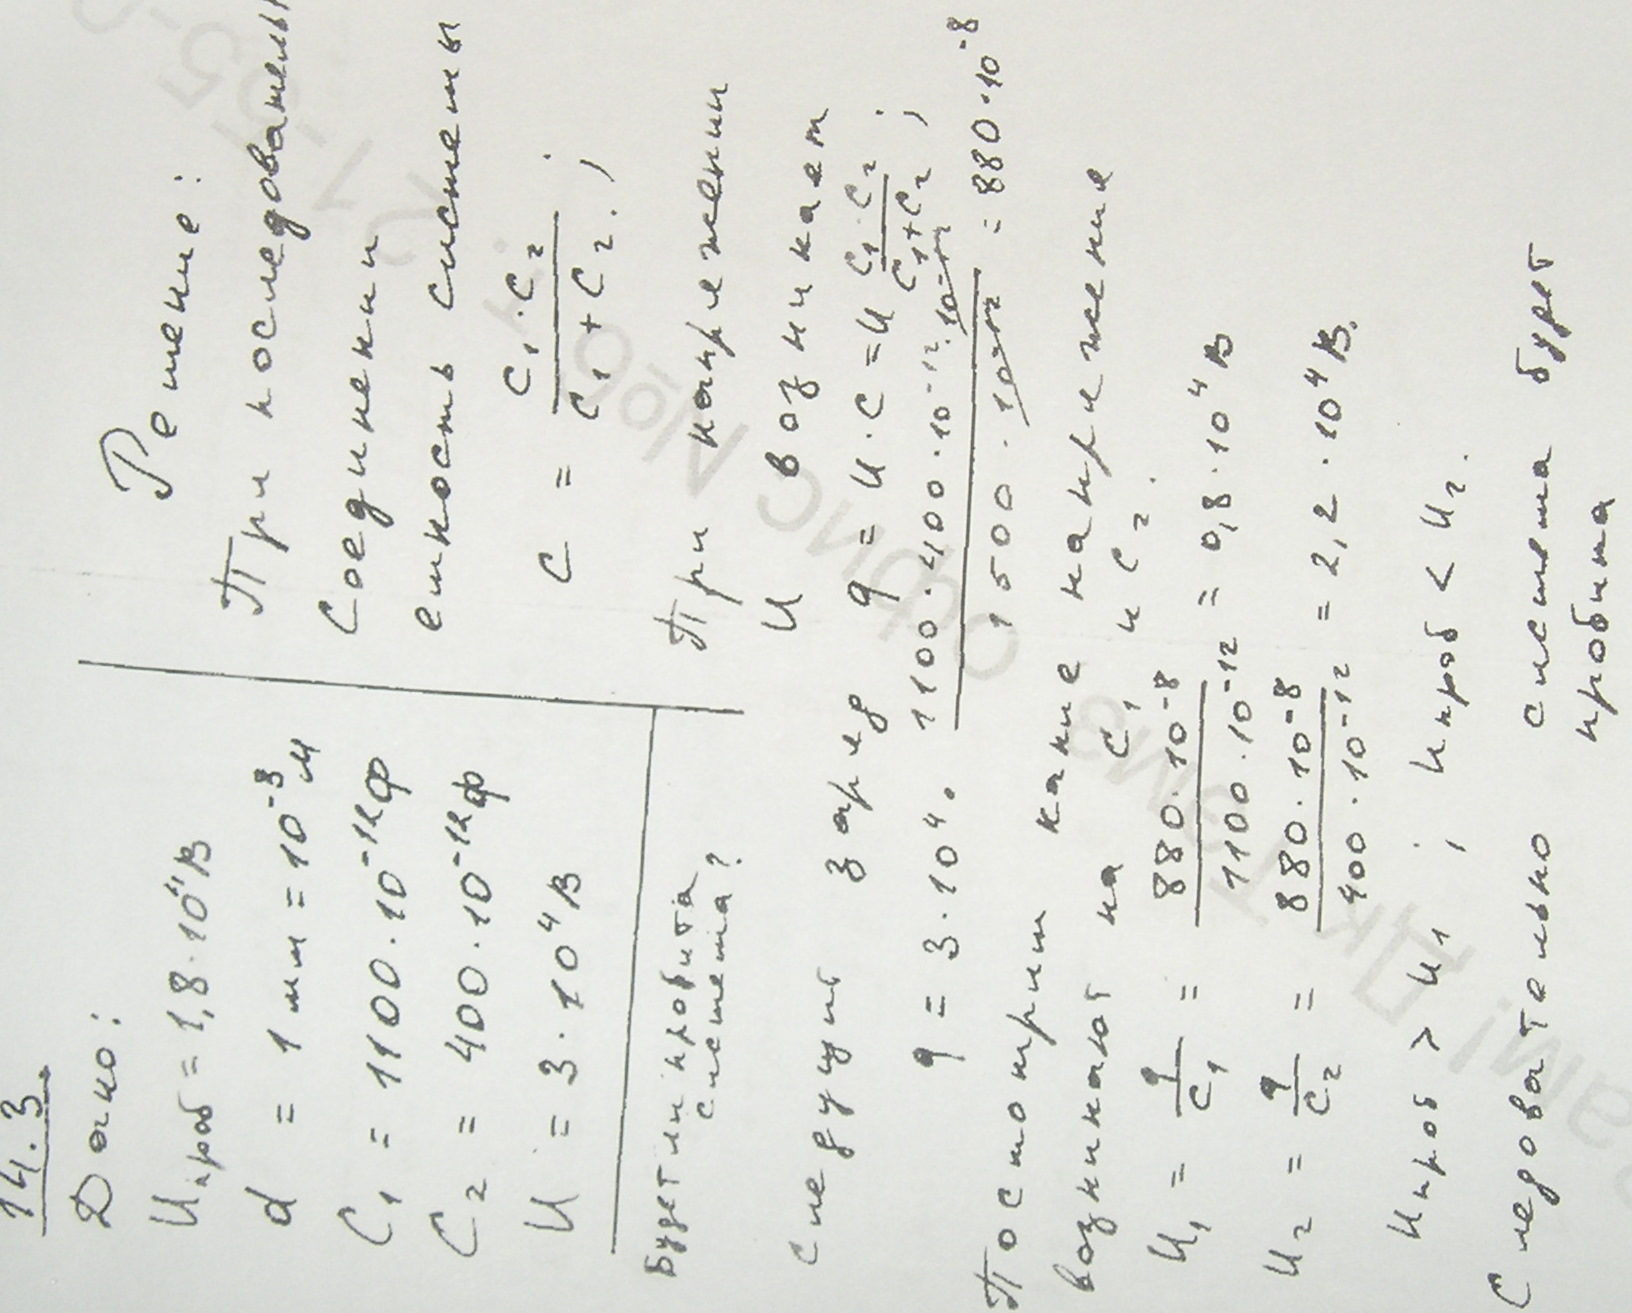 14.3
Дано:
Uпроб = 1,8·10⁴В
d = 1 мм = 10⁻³м
C₁ = 1100·10⁻¹²ф
C₂ = 400·10⁻¹²ф
U = 3·10⁴В
Будет ли пробита
система?
Решение:
При последовательн
Соединении
емкость системы
C = C₁·C₂ / C₁+C₂ ;
При напряжении
U возникает
Следующий заряд q = U·C = U C₁·C₂ / C₁+C₂ ;
q = 3·10⁴· 1100·400·10⁻¹²·10⁻¹² / 1500·10⁻¹² = 880·10⁻⁸
Посмотрим какие напряжение
возникают на C₁ и C₂.
U₁ = q / C₁ = 880·10⁻⁸ / 1100·10⁻¹² = 0,8·10⁴В
U₂ = q / C₂ = 880·10⁻⁸ / 400·10⁻¹² = 2,2·10⁴В.
Uпроб > U₁ ; Uпроб < U₂.
Следовательно система будет
пробита